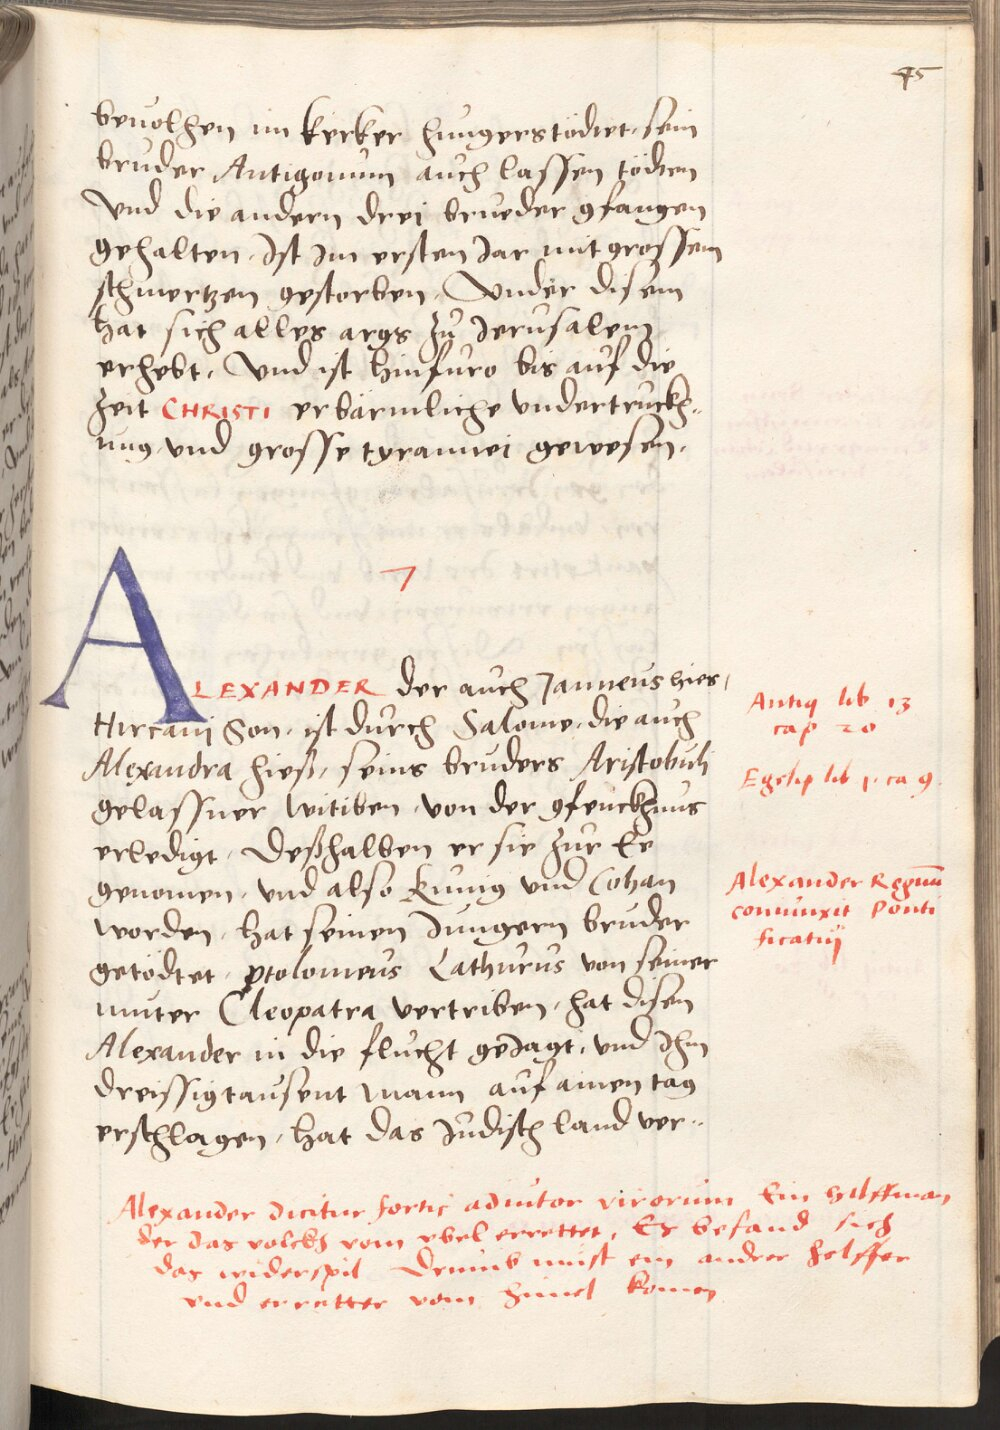 75
bevolhen im kerker hungerstödtet, sein
bruder Antigonum auch lassen tödten
Vnd die andern drei brueder gfangen
gehalten, Ist Im ersten Jar mit grossem
schmertzen gestorben, Vnder disem
hat sich alles args zu Jerusalem
erhebt, Vnd ist hinfuro bis auf die
Zeit CHRISTI erbärmliche vndertruckh-
ung vnd grosse tyrannei gewesen.
7
ALEXANDER der auch Janneus hies,
Hircani Son, ist durch Salome, die auch
Alexandra hieß, seins bruders Aristobuli
gelassner Witiben, von der gfenckhnus
erledigt, Deßhalben er sie zur Ee
genomen, vnd also Kunig vnd Cohan
worden, hat seinen Jungern bruder
getödtet, ptolomeus Lathurus von seiner
muter Cleopatra vertriben, hat disen
Alexander in die flucht geJagt, vnd Ihm
dreissigtausent Mann auf ainen tag
erschlagen, hat das Judisch land ver-
Antiq lib 13
cap 20
Egesip lib 1. ca 9.
Alexander Regnum
coniunxit Ponti
ficatuj
Alexander dicitur fortis adiutor virorum Ein Hilffman
der das volckh vom vbel errettet, Es befand sich
das widerspil Drumb must ein ander helffer
vnd erretter vom himel komen